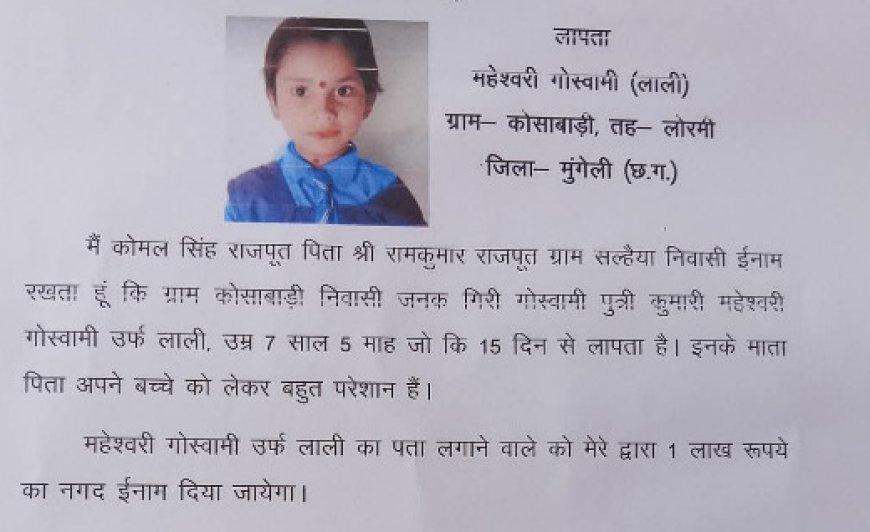 लापता
महेश्वरी गोस्वामी (लाली)
ग्राम– कोसाबाड़ी, तह– लोरमी
जिला– मुंगेली (छ.ग.)
मैं कोमल सिंह राजपूत पिता श्री रामकुमार राजपूत ग्राम सल्हैया निवासी ईनाम
रखता हूं कि ग्राम कोसाबाड़ी निवासी जनक गिरी गोस्वामी पुत्री कुमारी महेश्वरी
गोस्वामी उर्फ लाली, उम्र 7 साल 5 माह जो कि 15 दिन से लापता है। इनके माता
पिता अपने बच्चे को लेकर बहुत परेशान हैं।
महेश्वरी गोस्वामी उर्फ लाली का पता लगाने वाले को मेरे द्वारा 1 लाख रूपये
का नगद ईनाम दिया जायेगा।